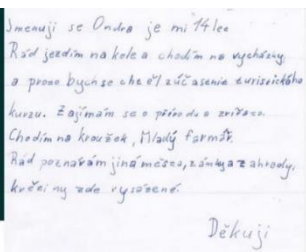 Jmenuji se Ondra je mi 14 let
Rád jezdím na kole a chodím na vycházky
a proto bych se chtěl zúčastnit turistického
kurzu. Zajímám se o přírodu a zvířata.
Chodím na kroužek, Mladý farmář.
Rád poznávám jiná města, zámky a zahrady,
květiny zde vysázené.
Děkuji